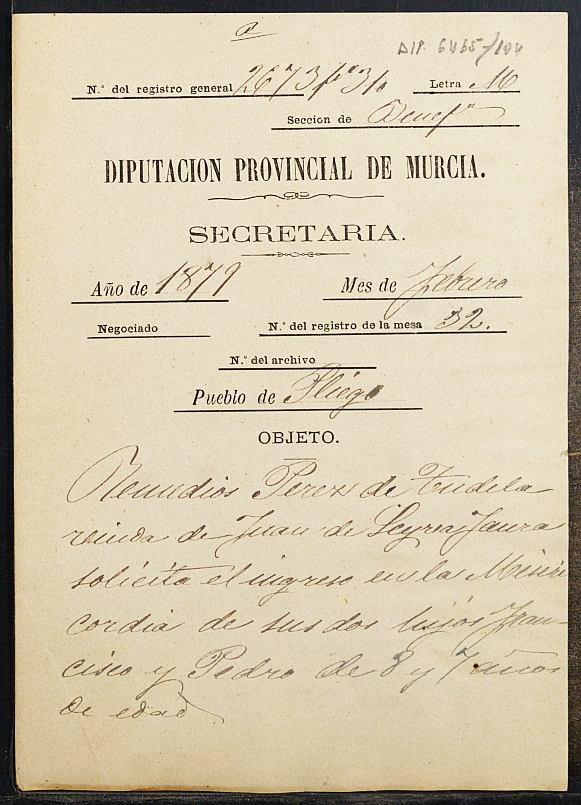 a
DIP. 6465/104
N.º del registro general 2673 fº 310 Letra M
Seccion de Benefª
DIPUTACION PROVINCIAL DE MURCIA.
SECRETARIA.
Año de 1879 Mes de Febrero
Negociado N.º del registro de la mesa 32.
N.º del archivo
Pueblo de Pliego
OBJETO.
Remedios Perez de Tudela
viuda de Juan de Leyva Faura
solicita el ingreso en la Miseri
cordia de sus dos hijos Fran-
cisco y Pedro de 8 y 7 años
de edad